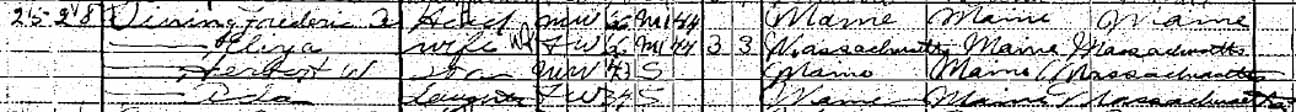 25 28 Vining Frederic Head M W M1 44 Maine Maine Maine
—— Eliza Wife F W M1 44 3 3 Massachusetts Maine Massachusetts
—— Herbert W Son M W 43 S Maine Maine Massachusetts
—— Ada Daughter F W 34 S Maine Maine Massachusetts